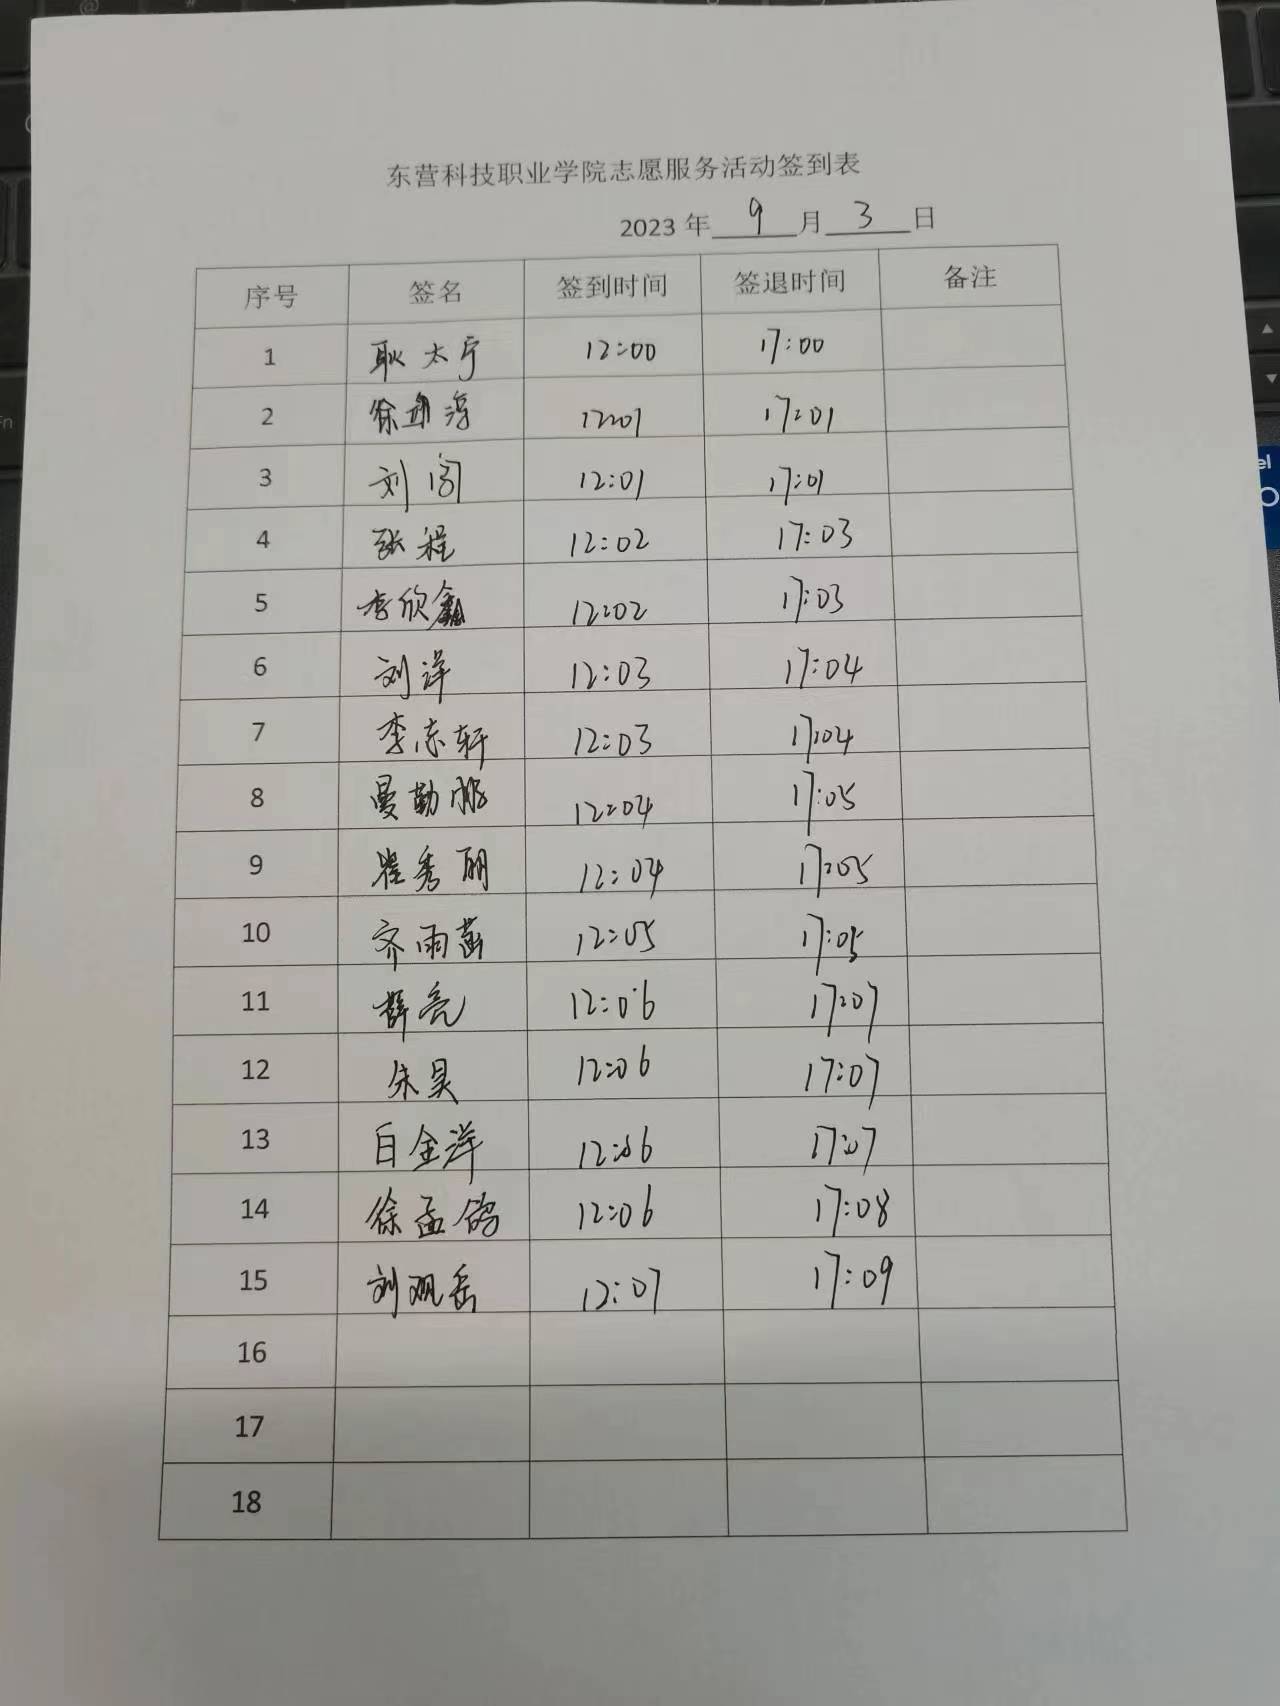 东营科技职业学院志愿服务活动签到表
2023 年 9 月 3 日
序号 签名 签到时间 签退时间 备注
1 耿太宁 12:00 17:00
2 徐 12:01 17:01
3 刘闯 12:01 17:01
4 张程 12:02 17:03
5 李欣鑫 12:02 17:03
6 刘洋 12:03 17:04
7 李东轩 12:03 17:04
8 曼勤鹏 12:04 17:05
9 崔秀丽 12:04 17:05
10 齐雨菡 12:05 17:05
11 薛亮 12:06 17:07
12 朱昊 12:06 17:07
13 白金洋 12:06 17:07
14 徐孟鸽 12:06 17:08
15 刘观岳 12:07 17:09
16
17
18